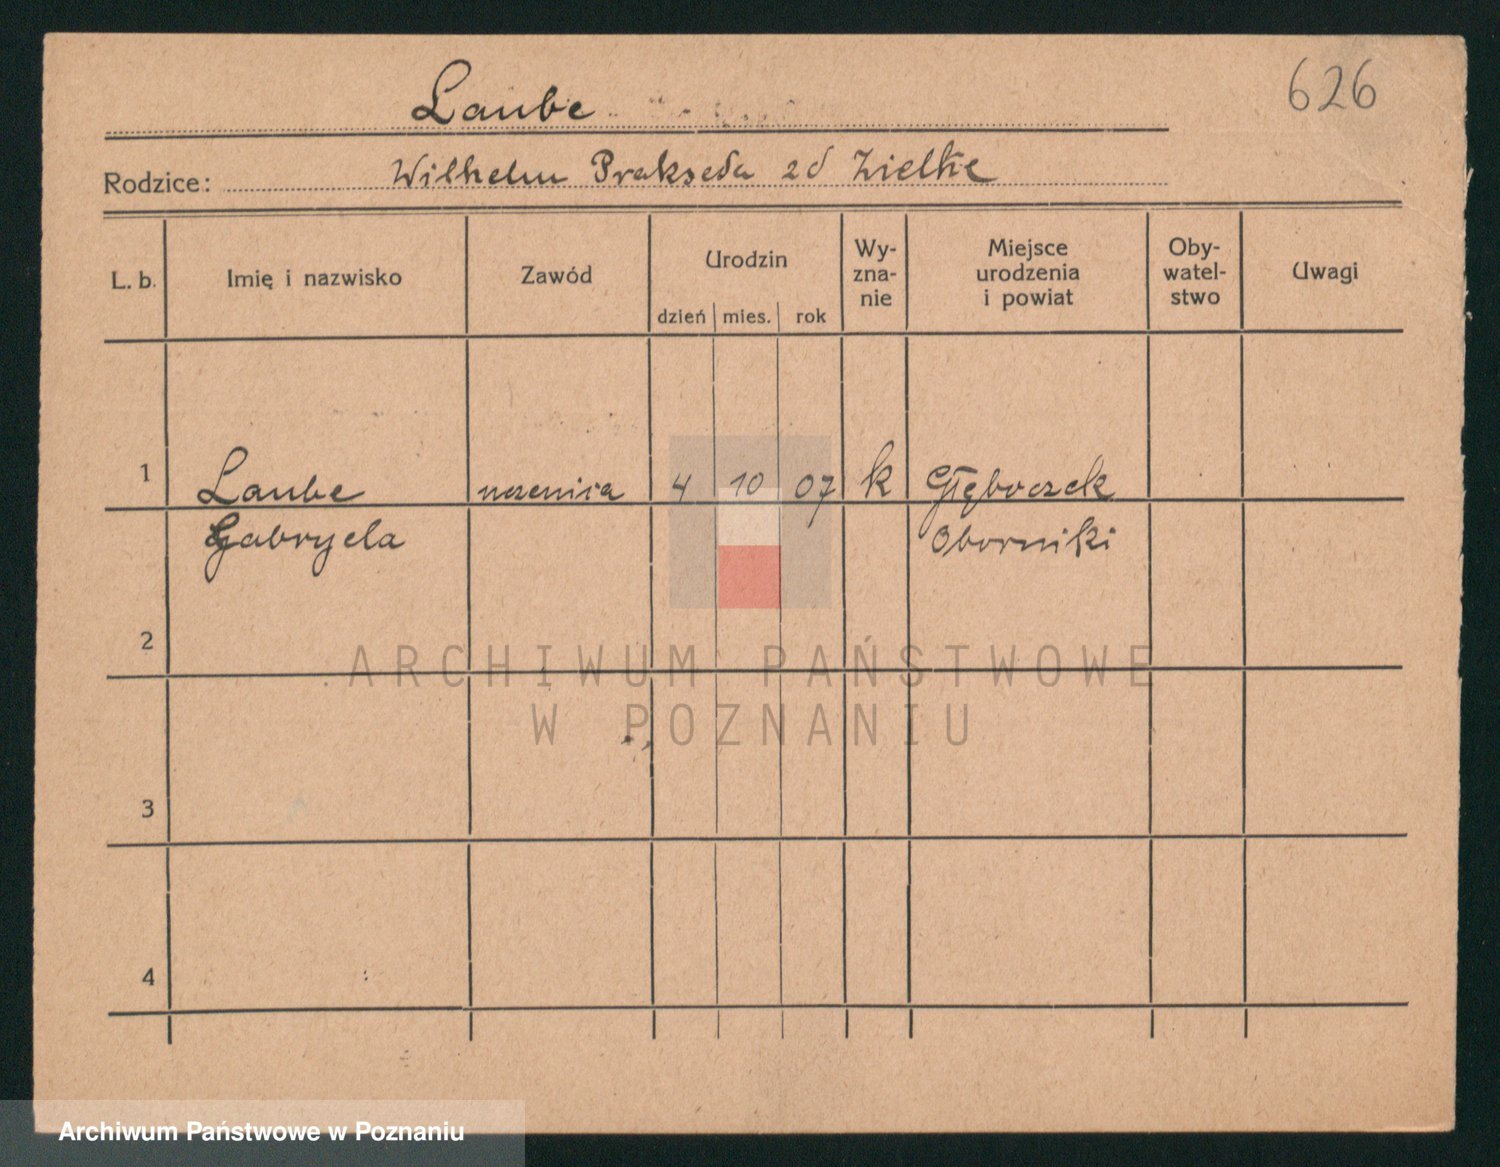 626
Laube
Rodzice: Wilhelm Prakseda zd Zielke
L. b. Imię i nazwisko Zawód Urodzin Wy-zna-nie Miejsce urodzenia i powiat Oby-watel-stwo Uwagi
dzień mies. rok
1 Laube uczenica 4 10 07 k Głęboczek
Gabryela Oborniki
2
ARCHIWUM PAŃSTWOWE
W POZNANIU
3
4
Archiwum Państwowe w Poznaniu